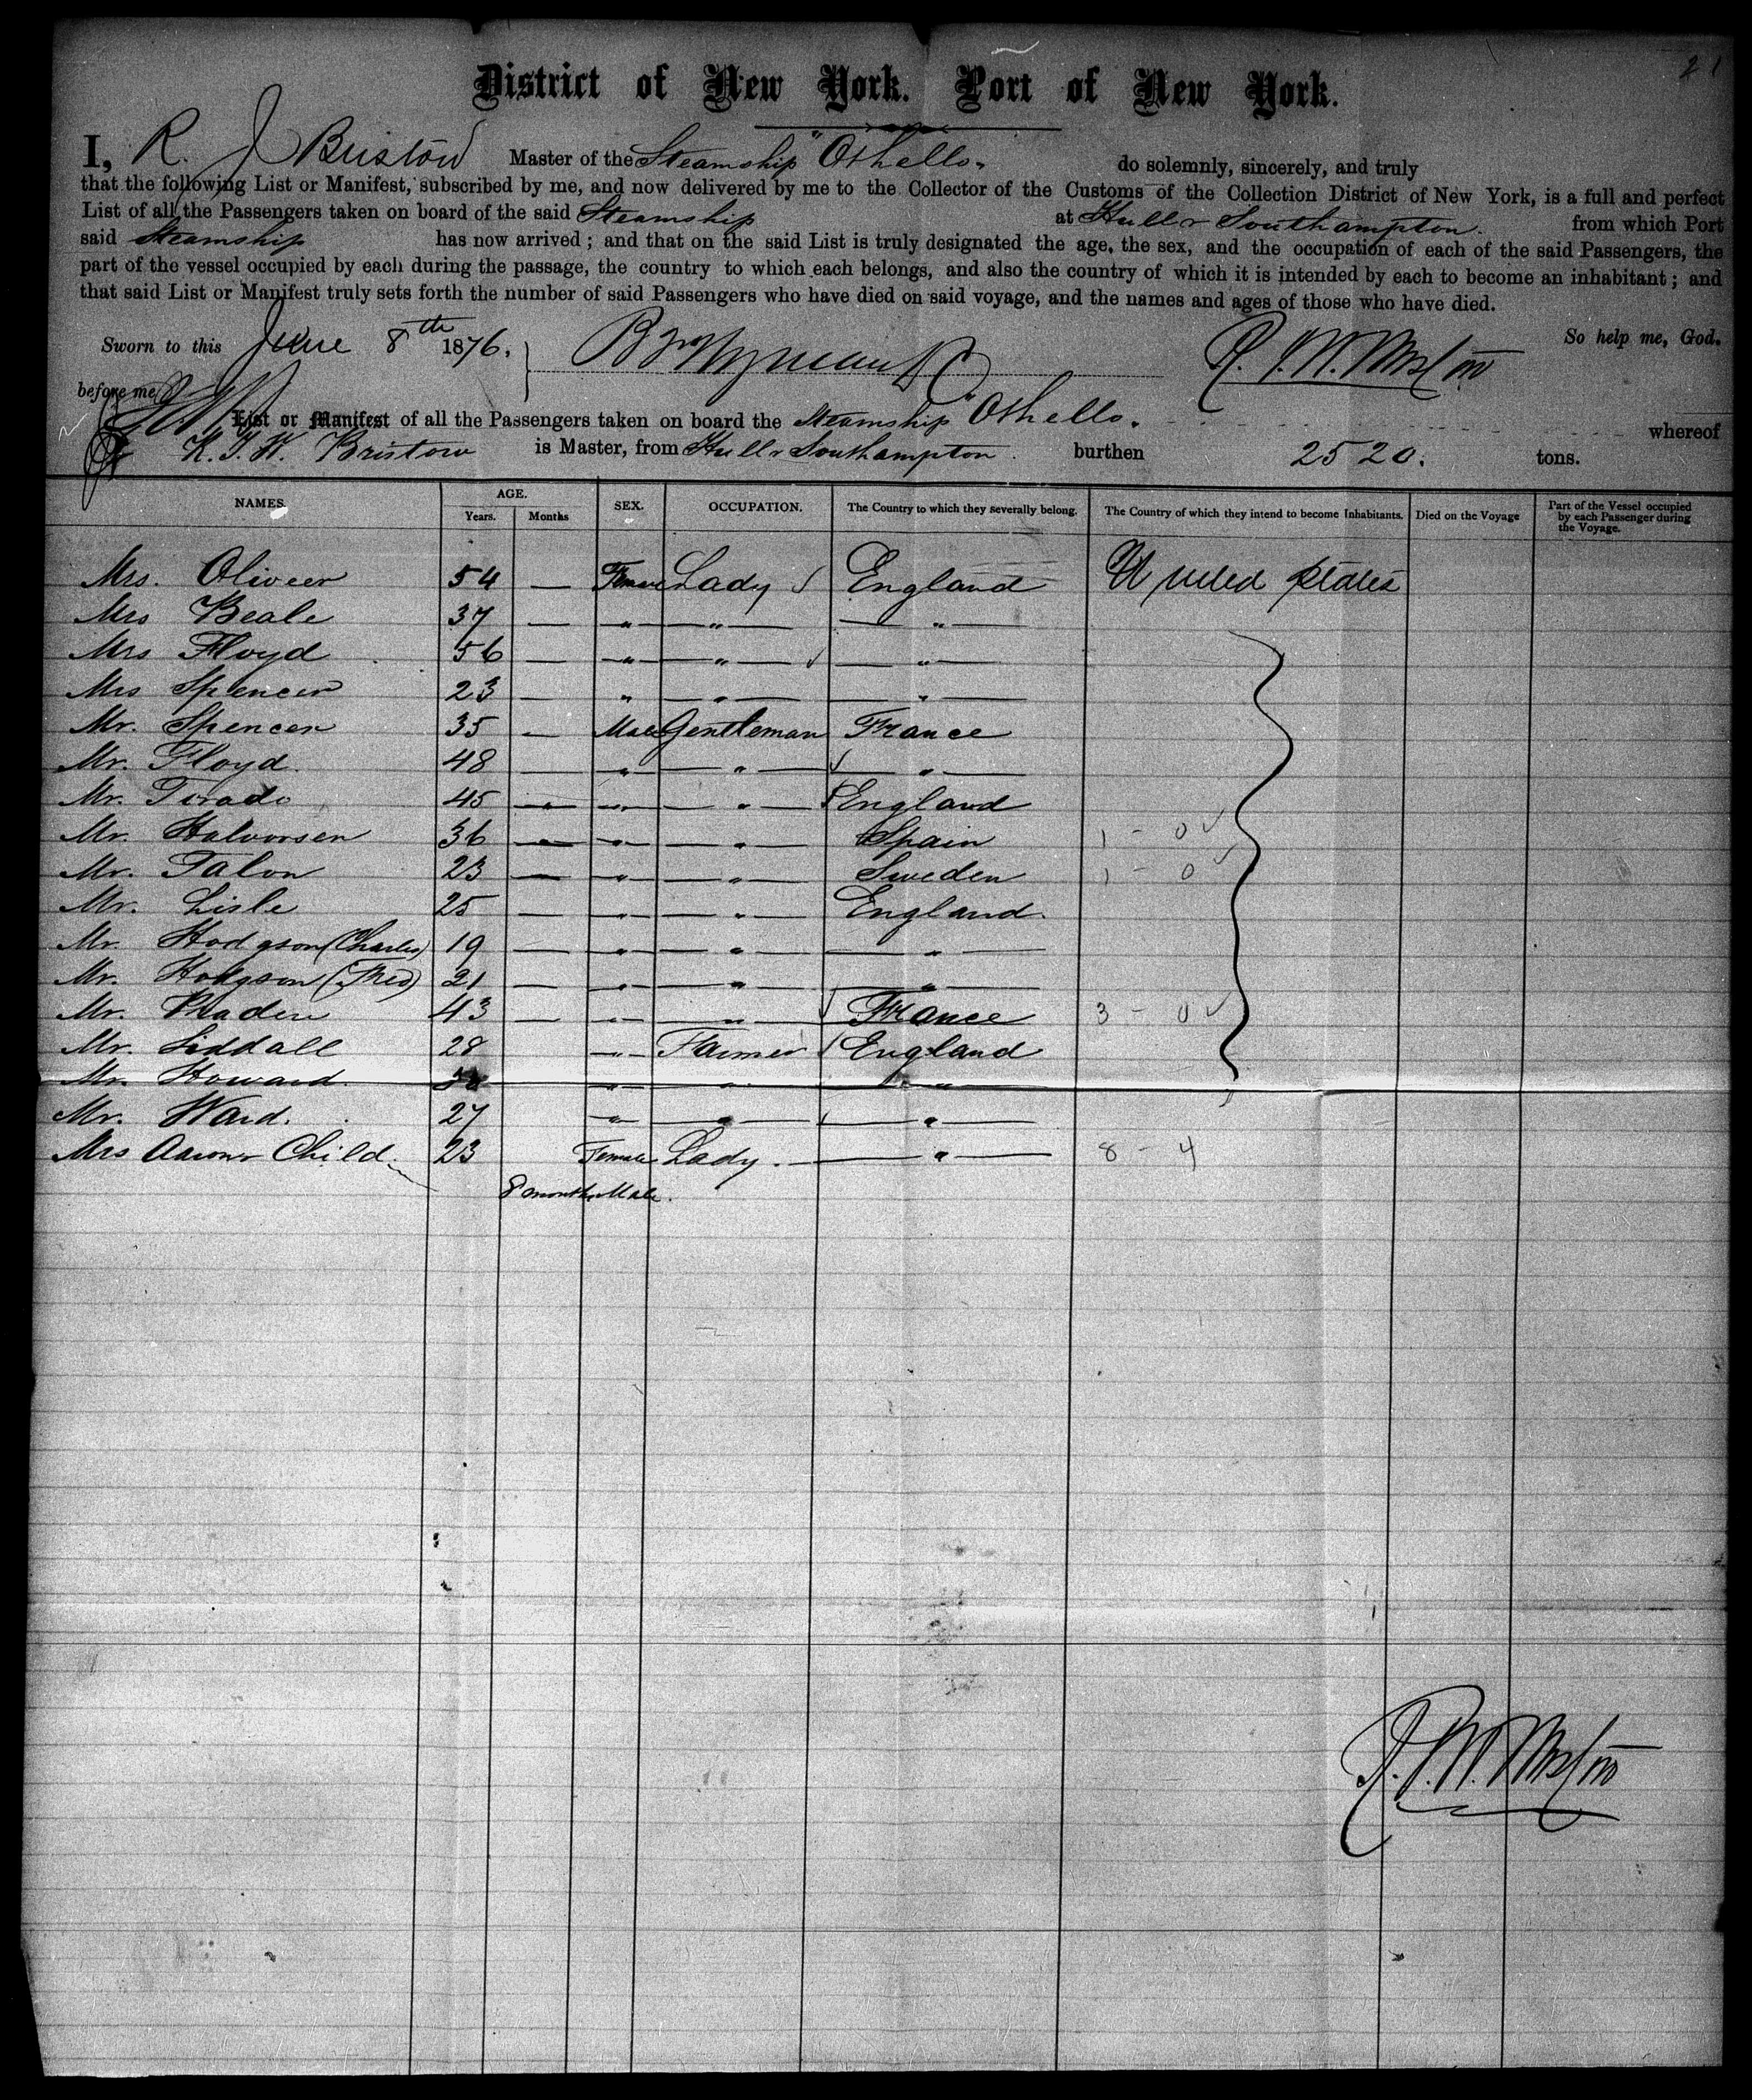 21
District of New York. Port of New York.
I, R. J Bristow Master of the Steamship "Othello" do solemnly, sincerely, and truly
that the following List or Manifest, subscribed by me, and now delivered by me to the Collector of the Customs of the Collection District of New York, is a full and perfect
List of all the Passengers taken on board of the said Steamship at Hull & Southampton. from which Port
said Steamship has now arrived; and that on the said List is truly designated the age, the sex, and the occupation of each of the said Passengers, the
part of the vessel occupied by each during the passage, the country to which each belongs, and also the country of which it is intended by each to become an inhabitant; and
that said List or Manifest truly sets forth the number of said Passengers who have died on said voyage, and the names and ages of those who have died.
So help me, God.
Sworn to this June 8th 1876.
before me
List or Manifest of all the Passengers taken on board the Steamship "Othello. whereof
R. J. W. Bristow is Master, from Hull & Southampton. burthen 2520. tons.
NAMES. AGE. SEX. OCCUPATION. The Country to which they severally belong. The Country of which they intend to become Inhabitants. Died on the Voyage Part of the Vessel occupied by each Passenger during the Voyage.
Years. Months
Mrs. Oliveer 54 — Female Lady England United States
Mrs Beale 37 — " " "
Mrs Floyd 56 — " " "
Mrs Spencer 23 — " " "
Mr. Spencer 35 — Male Gentleman France
Mr. Floyd 48 — " " "
Mr. Tirado 45 — " " England
Mr. Halvorsen 36 — " " Spain 1 - 0
Mr. Talon 23 — " " Sweden 1 - 0
Mr. Lisle 25 — " " England.
Mr. Hodgson (Charles) 19 — " " "
Mr. Hodgson 21 — " " "
Mr. 43 — " " France 3 - 0
Mr. Liddall 28 " Farmer England
Mr. Howard. " " "
Mr. Ward. 27 " " "
Mrs Aaron & Child. 23 Female Lady. " 8 - 4
8 months Male.